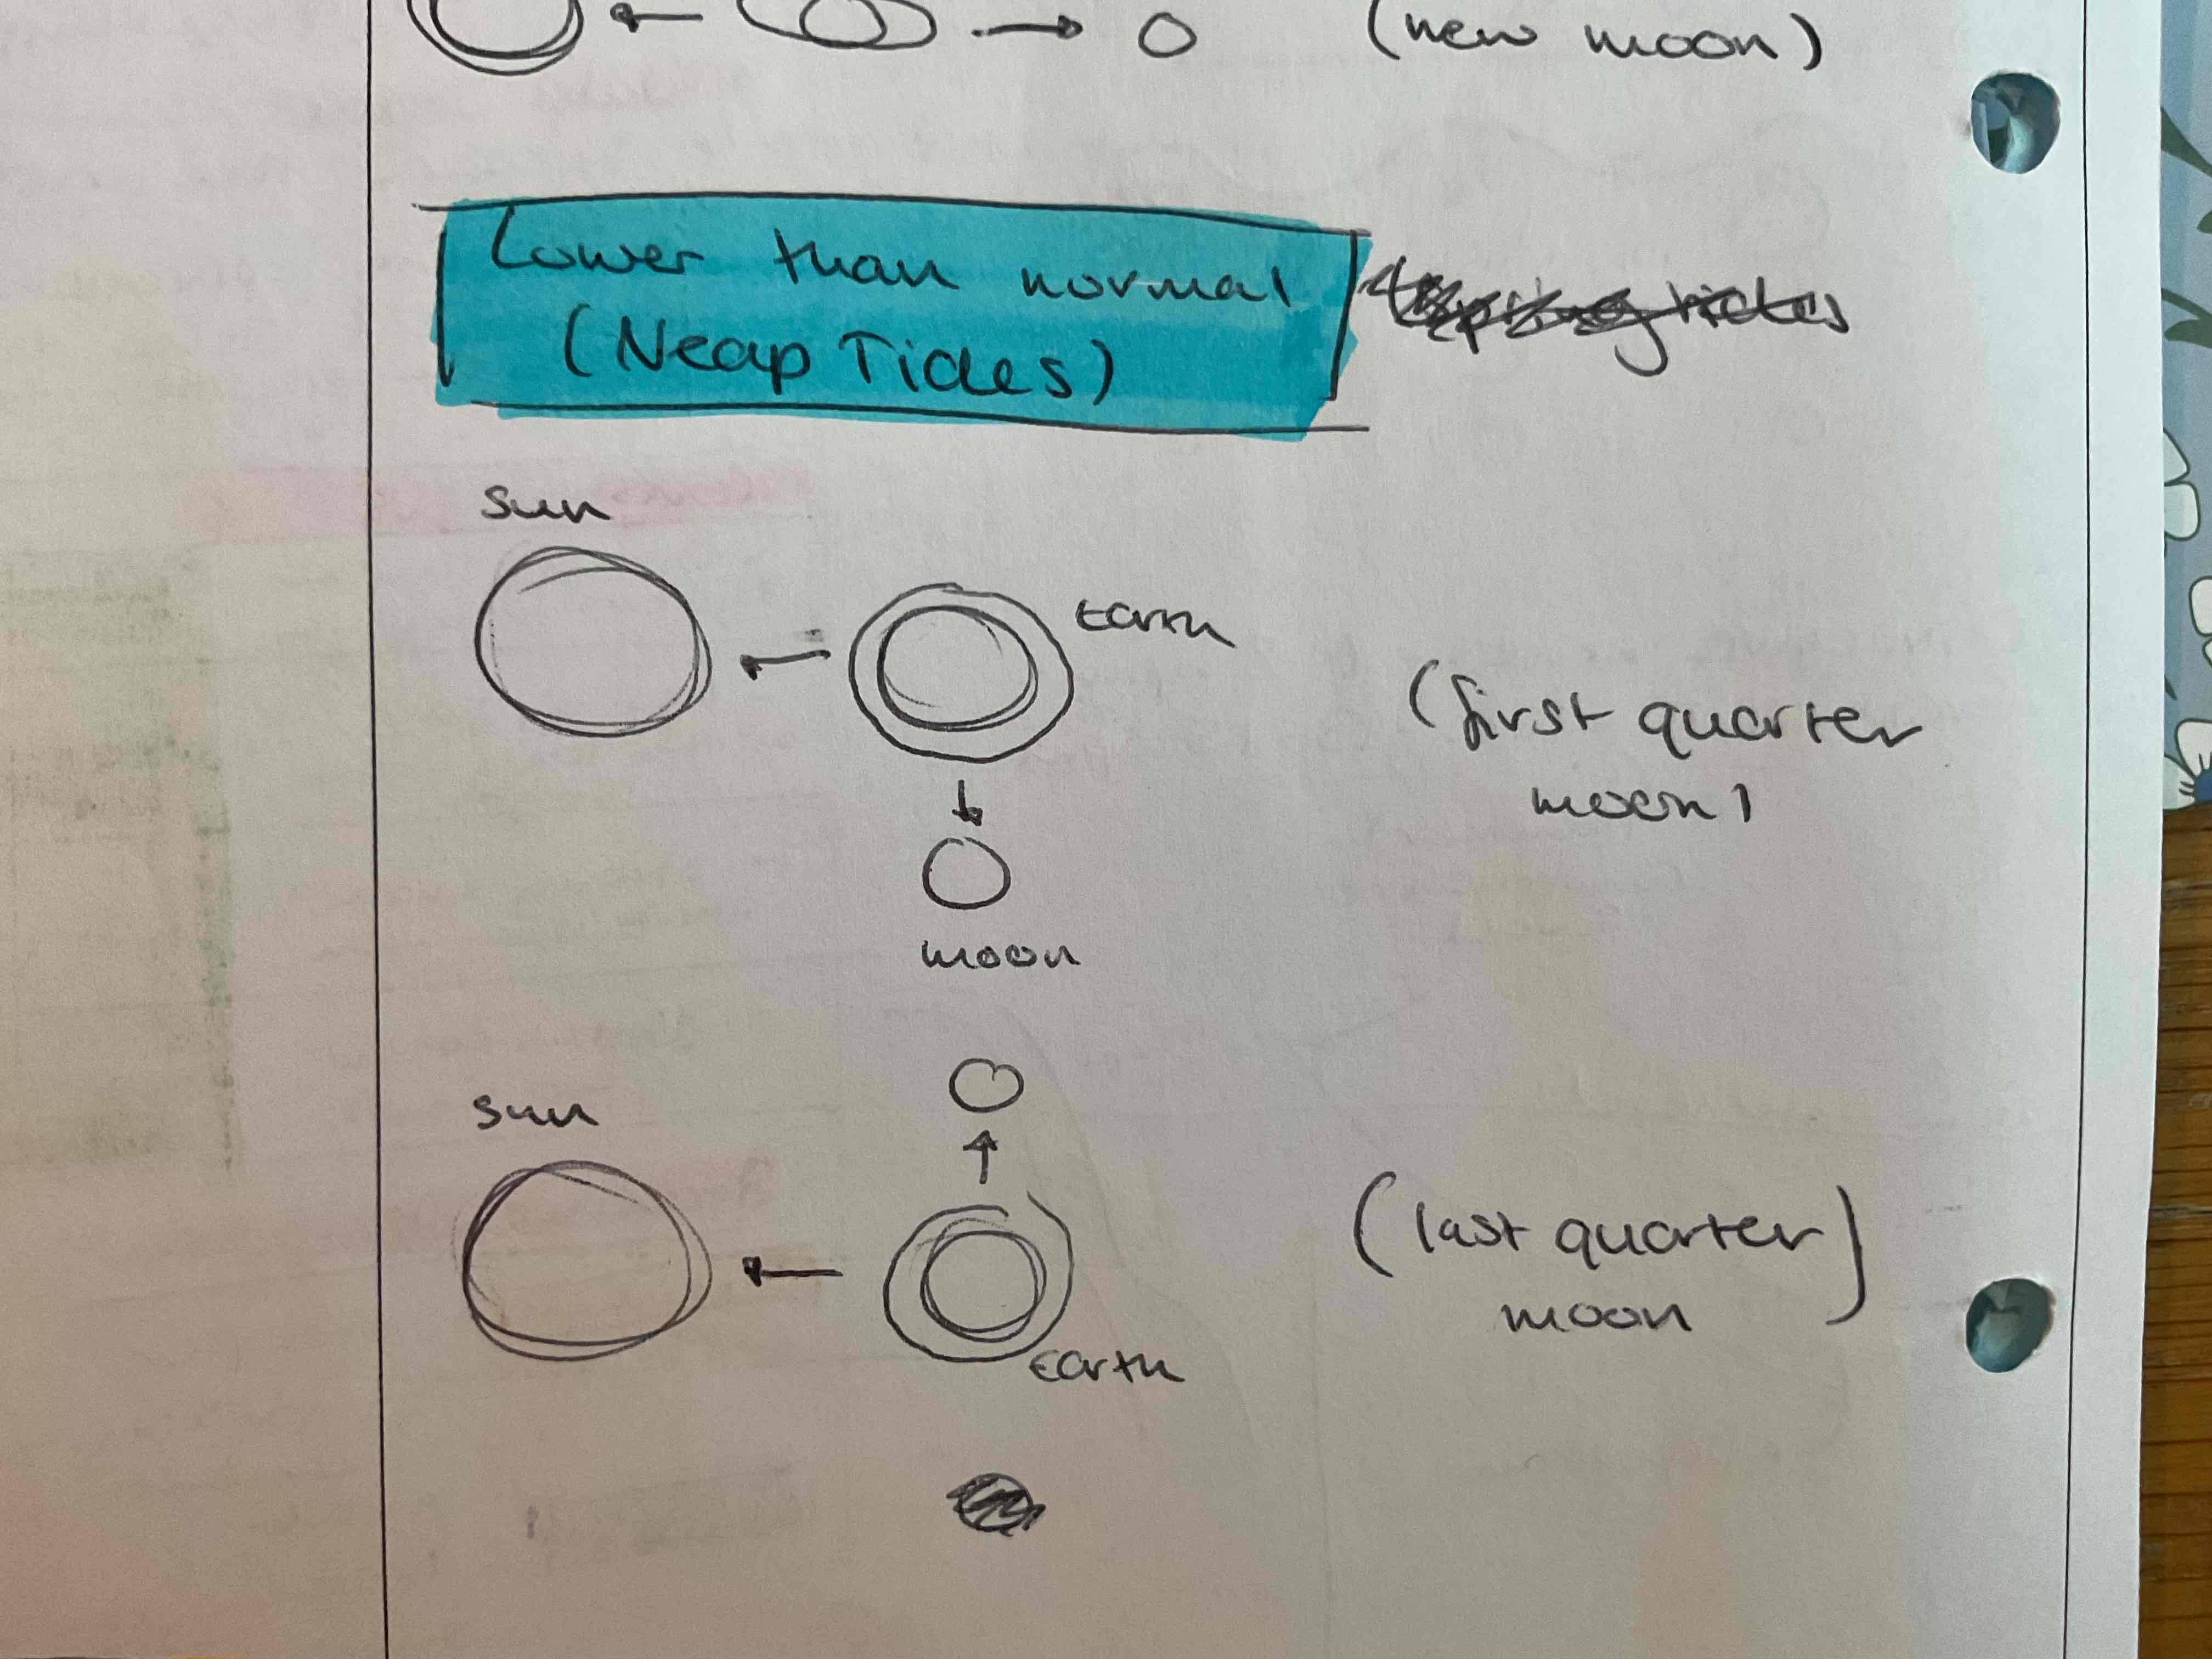 (new moon)
Lower than normal
(Neap Tides)
spring tides
sun
Earth
(first quarter
moon)
moon
sun
(last quarter)
moon
Earth